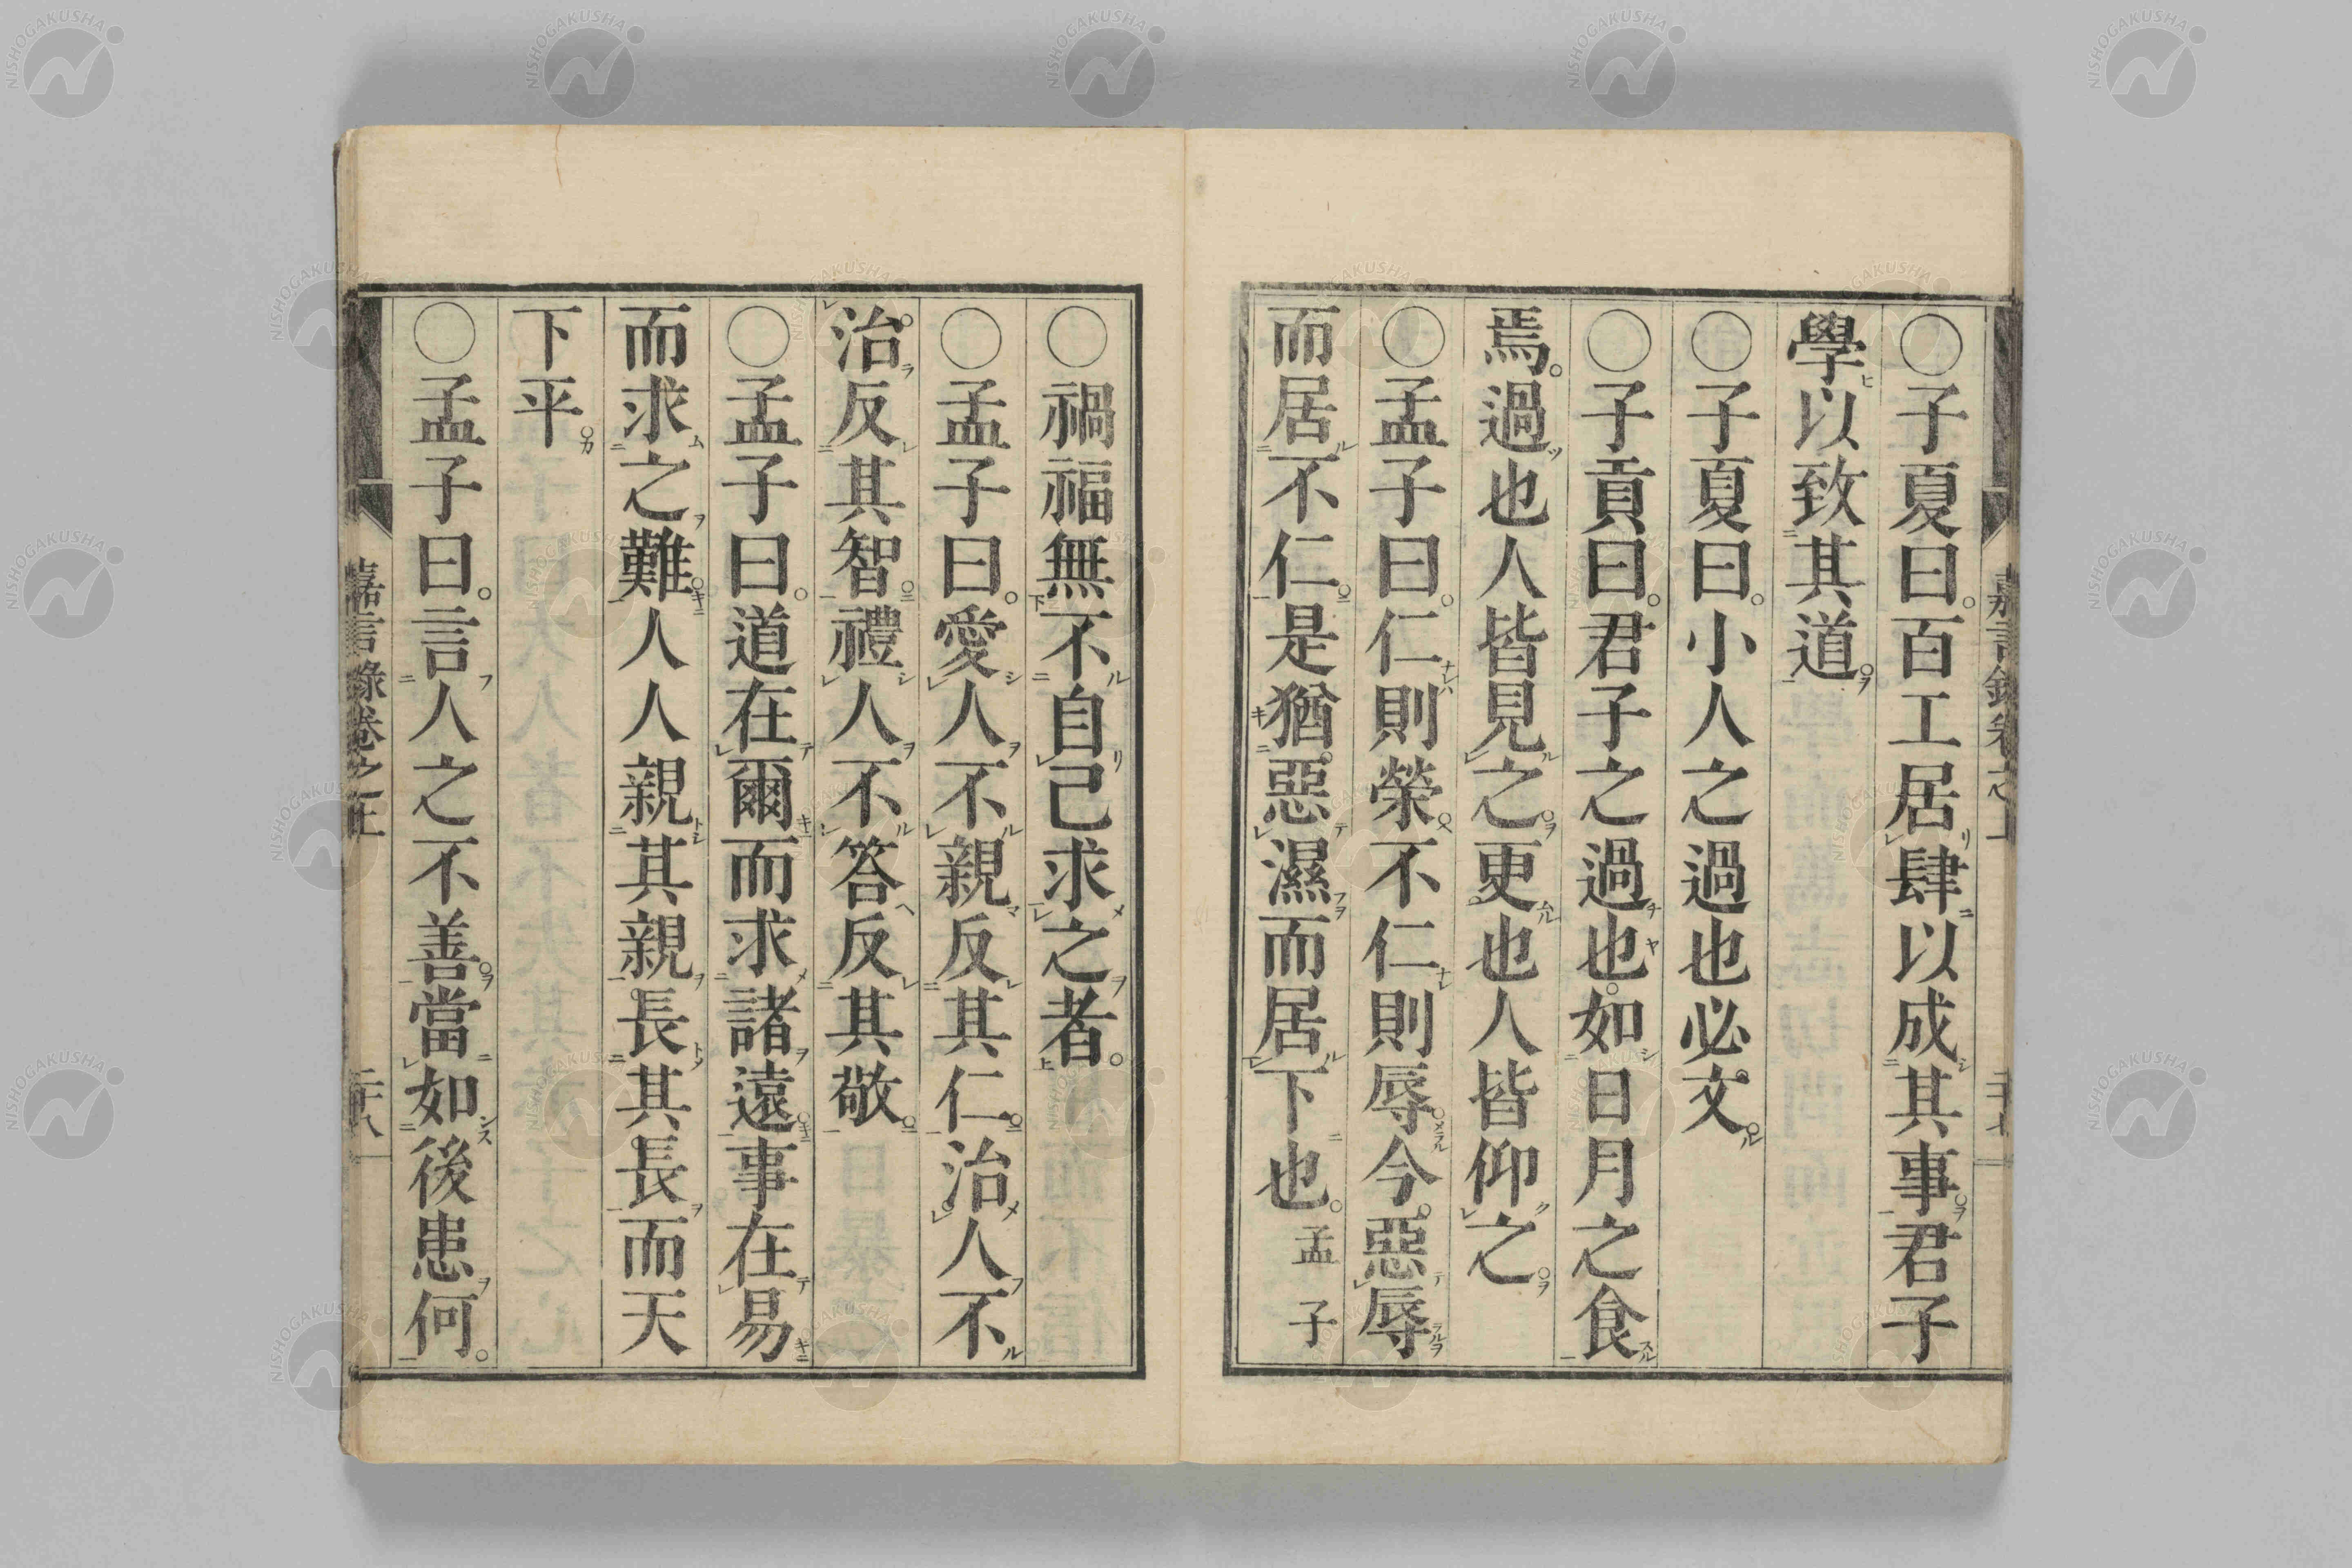 〇子夏曰。百工居肆以成其事。君子
學以致其道。
〇子夏曰。小人之過也必文。
〇子貢曰。君子之過也。如日月之食
焉。過也人皆見之。更也人皆仰之。
〇孟子曰。仁則榮。不仁則辱。今惡辱
而居不仁。是猶惡濕而居下也。孟子
〇禍福無不自己求之者。
〇孟子曰。愛人不親反其仁。治人不
治。反其智。禮人不答反其敬。
〇孟子曰。道在爾而求諸遠。事在易
而求之難。人人親其親。長其長而天
下平。
〇孟子曰。言人之不善。當如後患何。
嘉言錄卷之上
二十八
NISHOGAKUSHA